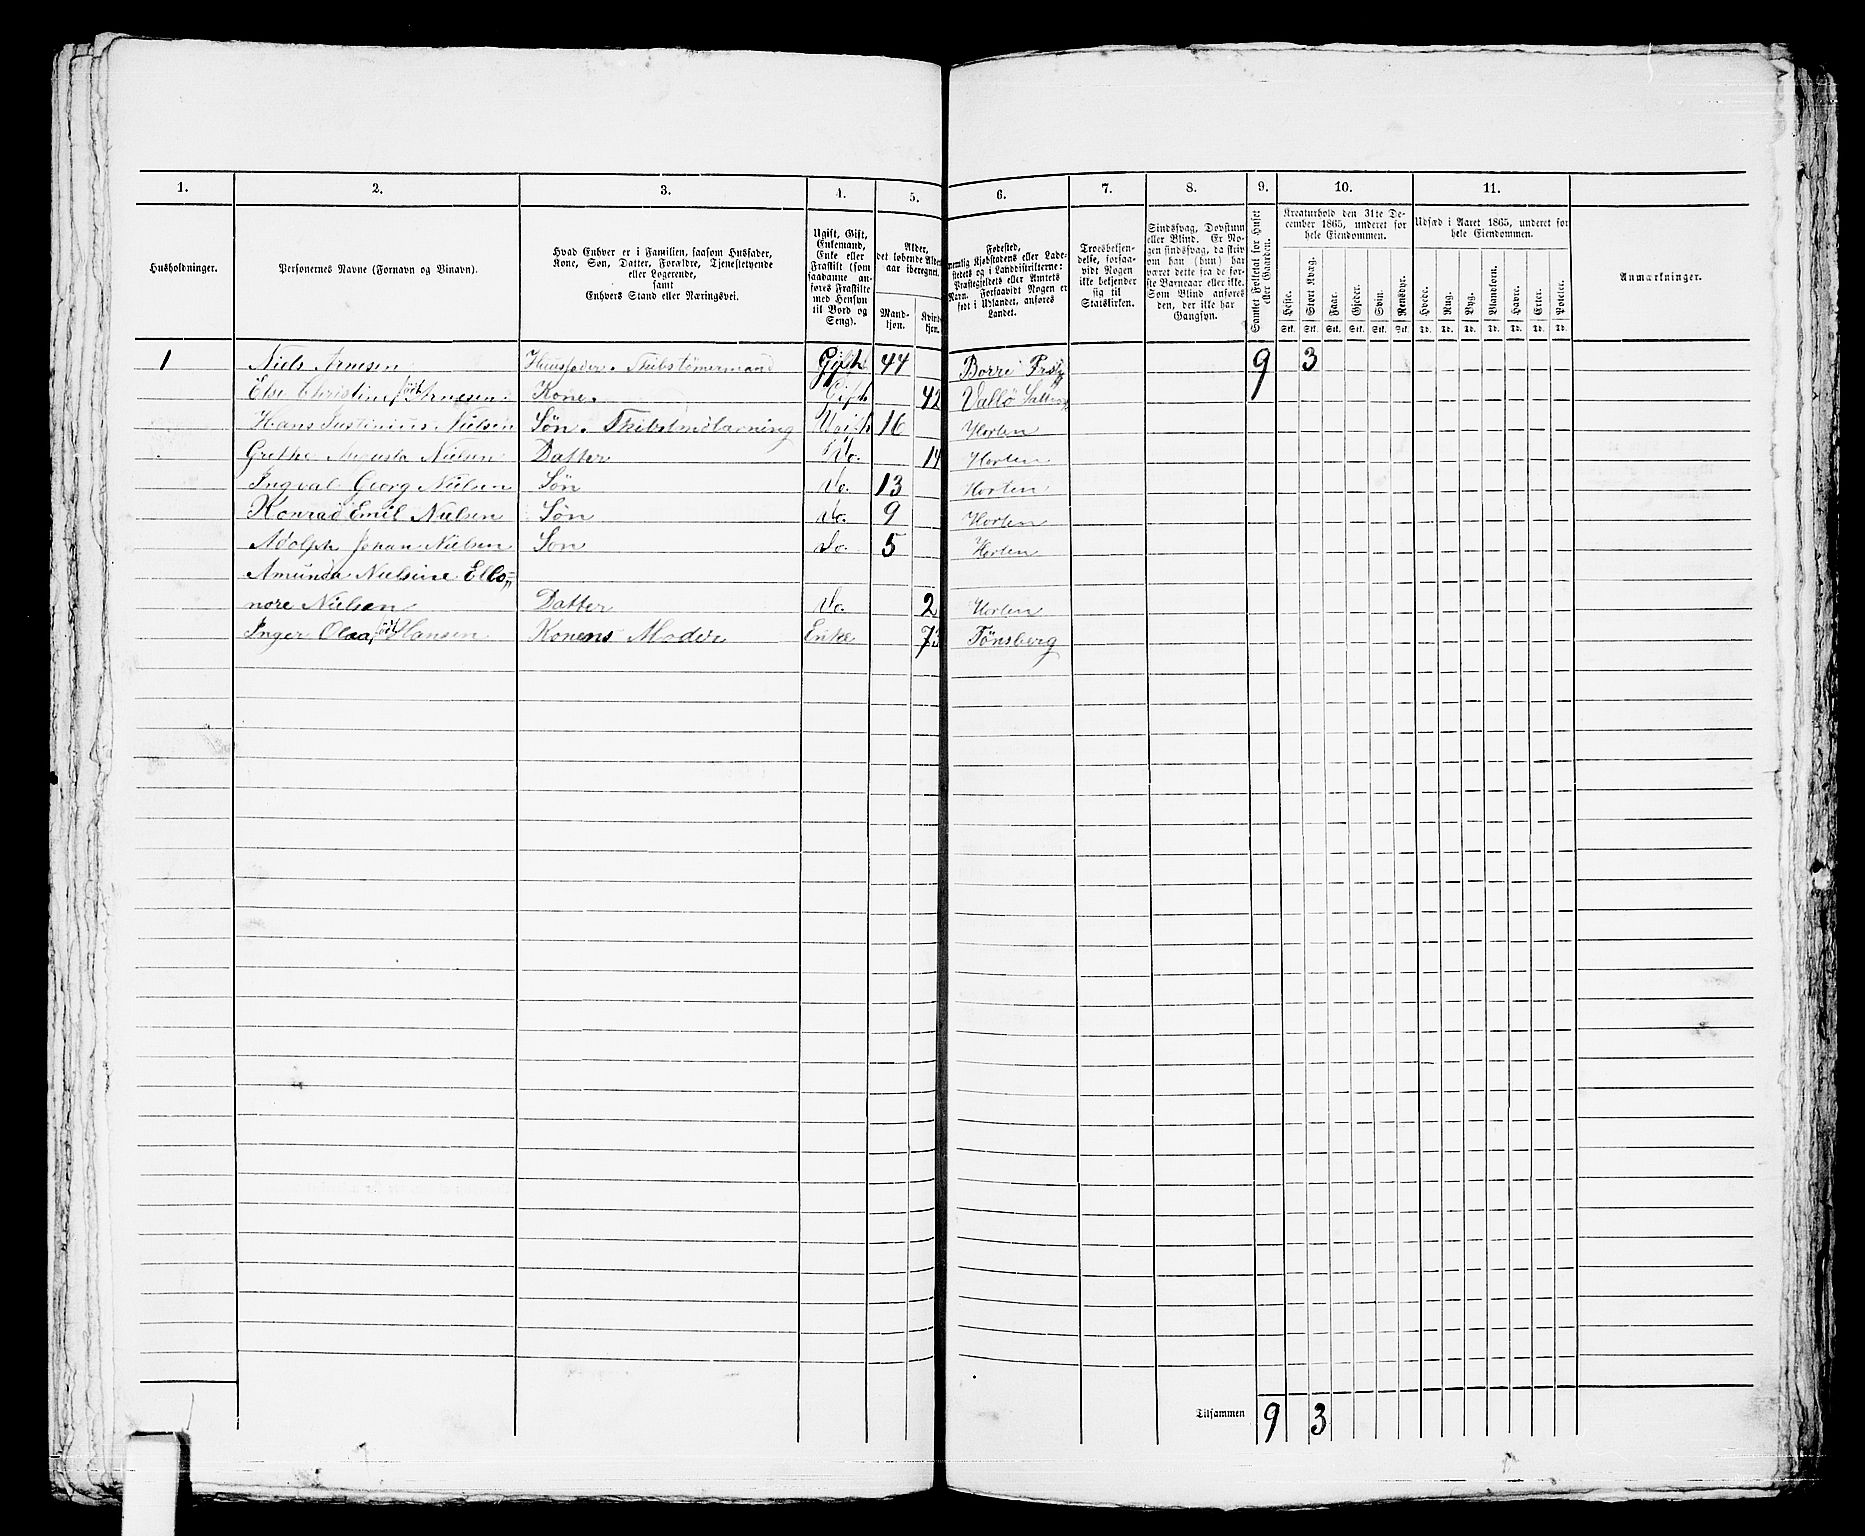 1. 2. 3. 4. 5. 6. 7. 8. 9. 10. 11.
Husholdninger.
Personernes Navne (Fornavn og Vinavn).
Hvad Enhver er i Familien, saasom Husfader,
Kone, Søn, Datter, Forældre, Tjenestetyende
eller Logerende,
samt
Enhvers Stand eller Næringsvei.
Ugift, Gift,
Enkemand,
Enke eller
Fraskilt (som
saadanne an-
føres Fraskilte
med Hensyn
til Bord og
Seng).
Alder,
det løbende Alders-
aar iberegnet.
Mand-
kjøn.
Kvinde-
kjøn.
Fødested,
nemlig Kjøbstadens eller Lade-
stedets og i Landdistrikterne:
Præstegjeldets eller Amtets
Navn. Forsaavidt Nogen er
født i Udlandet, anføres
Landet.
Troesbekjen-
delse, forsaa-
vidt Nogen
ikke bekjender
sig til
Statskirken.
Sindssvag, Døvstum
eller Blind. Er No-
gen sindssvag, da skriv
om han (hun) har
været dette fra de før-
ste Barneaar eller ikke.
Som Blind anføres
den, der ikke har
Gangsyn.
Samlet Folketal for Huset
eller Gaarden.
Kreaturhold den 31te De-
cember 1865, underet for
hele Eiendommen.
Heste. Stort Kvæg. Faar. Gjeder. Svin. Rensdyr.
Stk. Stk. Stk. Stk. Stk. Stk.
Udsæd i Aaret 1865, underet for
hele Eiendommen.
Hvede. Rug. Byg. Blandkorn. Havre. Erter. Poteter.
Td. Td. Td. Td. Td. Td. Td.
Anmærkninger.
1 Niels Arnesen Huusfader. Skibstømermand Gift 44 Borre 9 3
Else Christine født Arnesen Kone. Gift 42 Vallø
Hans Justinius Nielsen Søn. Ugift 16 Horten
Grethe Augusta Nielsen Datter Do. 14 Horten
Ingval Georg Nielsen Søn do. 13 Horten
Konrad Emil Nielsen Søn do. 9 Horten
Adolph Johan Nielsen Søn do. 5 Horten
Amunda Nielsine Elleo=
nore Nielsen Datter do. 2 Horten
Inger Olea, født Hansen Konens Moder Enke 73 Tønsberg
Tilsammen 9 3